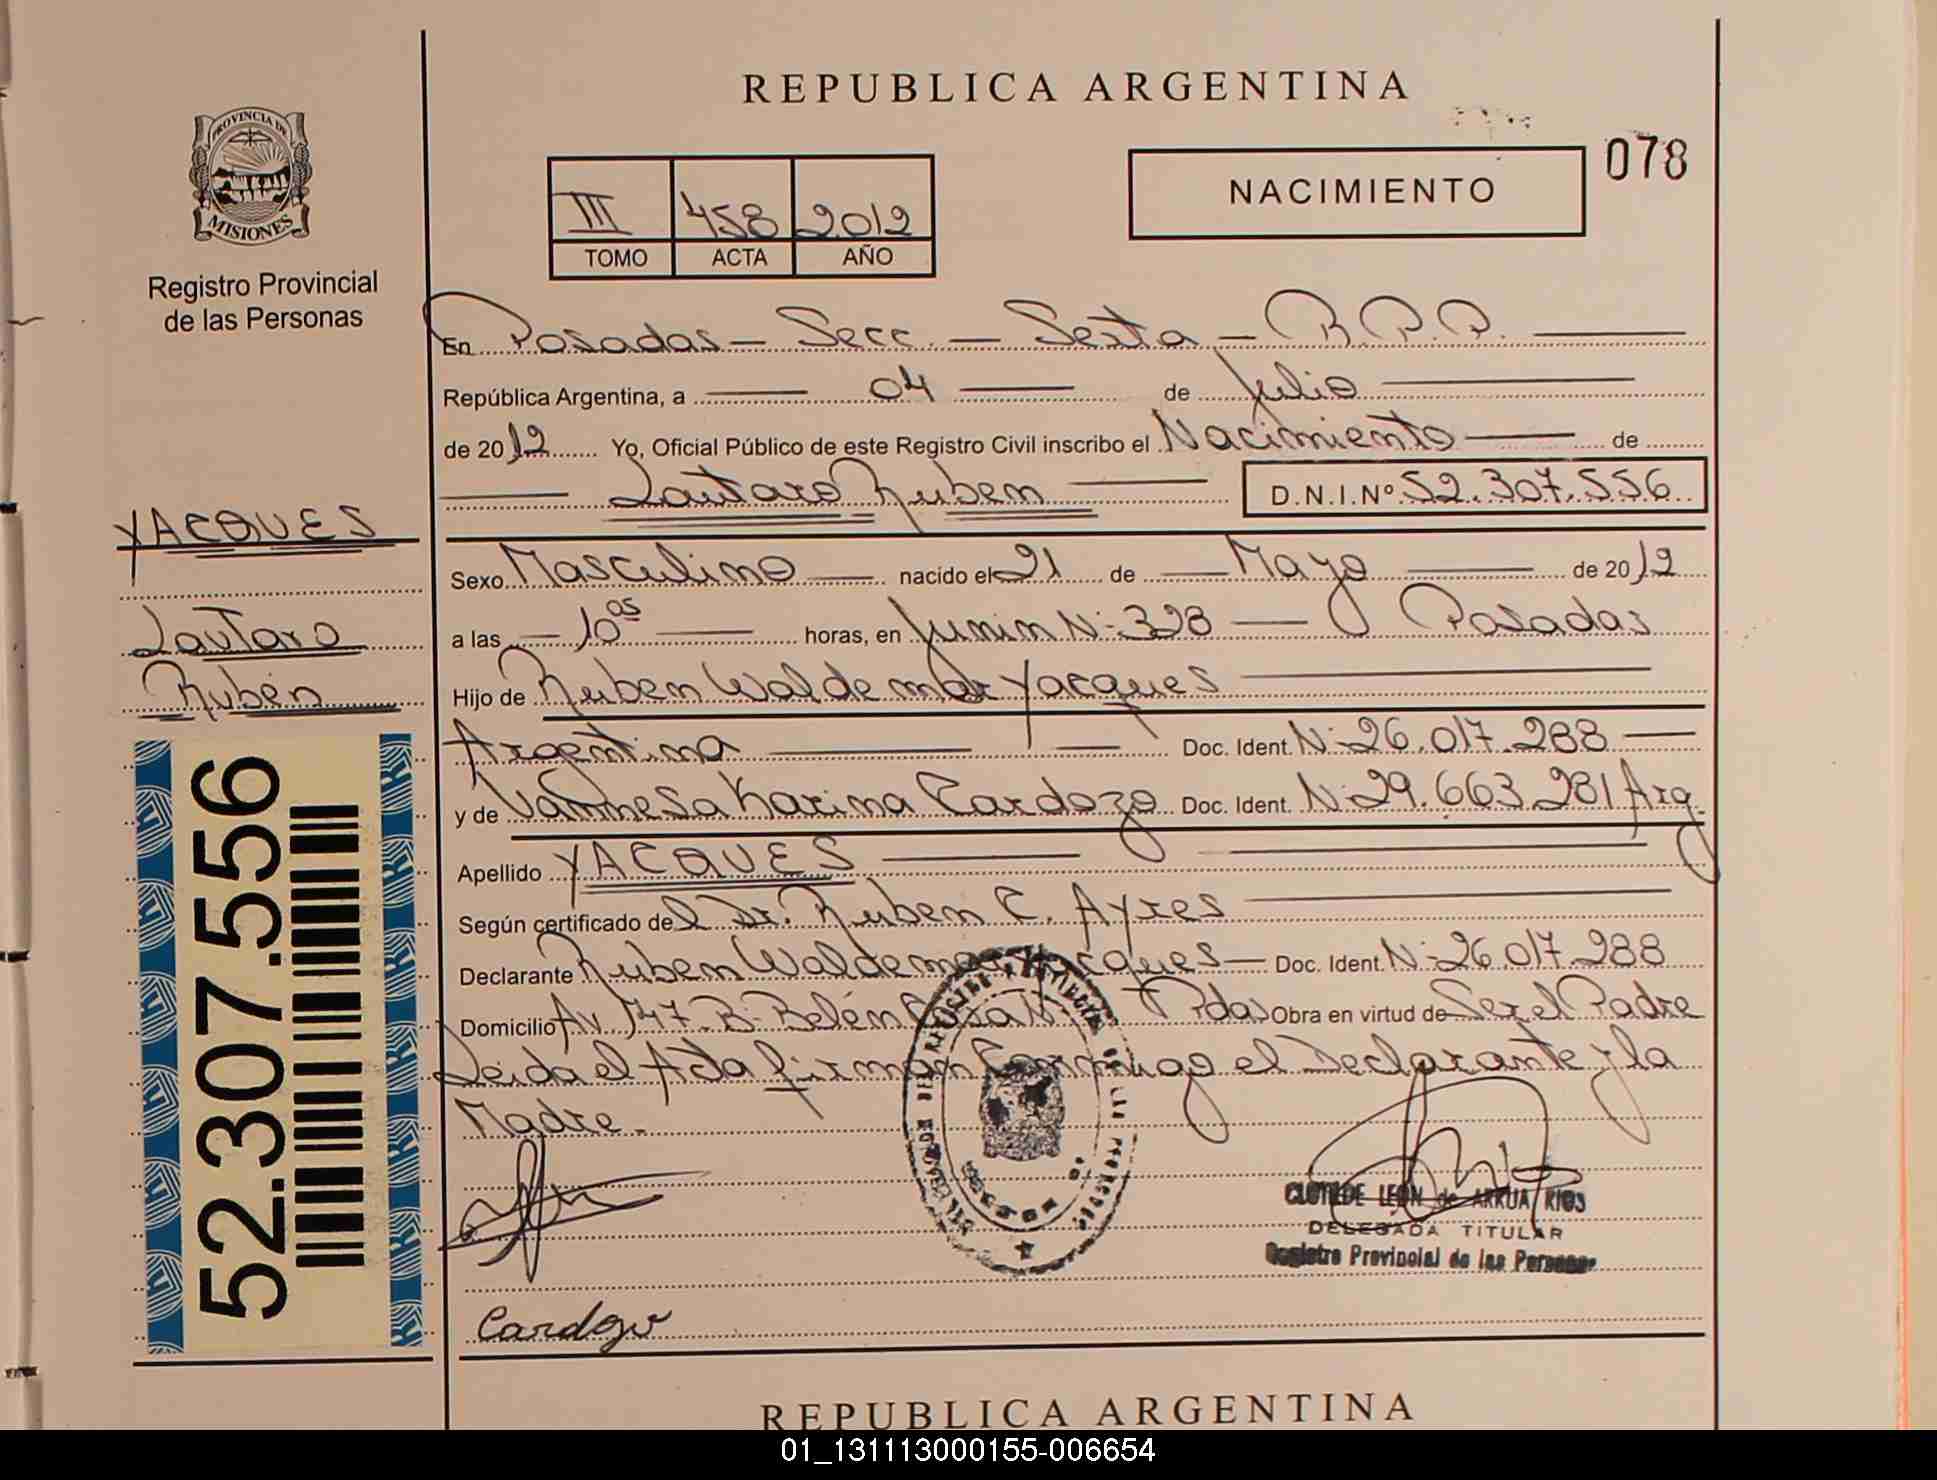 REPUBLICA ARGENTINA
PROVINCIA DE
MISIONES
Registro Provincial
de las Personas
III 458 2012
TOMO ACTA AÑO
NACIMIENTO
078
En Posadas - Secc. - Sexta - R.P.P.
República Argentina, a 04 de Julio
de 2012 Yo, Oficial Público de este Registro Civil inscribo el Nacimiento de
Lautaro Ruben D.N.I.Nº 52.307.556
YACQUES
Lautaro
Rubén
52.307.556
Sexo Masculino nacido el 21 de Mayo de 2012
a las 10 05 horas, en Junin Nº 328 Posadas
Hijo de Ruben Waldemar Yacques
Argentina Doc. Ident. Nº 26.017.288
y de Vannesa Karina Cardozo Doc. Ident. Nº 29.663.281 Arg.
Apellido YACQUES
Según certificado del Dr. Ruben C. Ayres
Declarante Ruben Waldemar Yacques Doc. Ident. Nº 26.017.288
Domicilio Av. 147 Bº Belén Pdas Obra en virtud de Ser el Padre
Leida el Acta firman Conmigo el Declarante y la
Madre.
CLOTILDE LEON de ARRUA RIOS
DELEGADA TITULAR
Registro Provincial de las Personas
Cardozo
REPUBLICA ARGENTINA
01_131113000155-006654